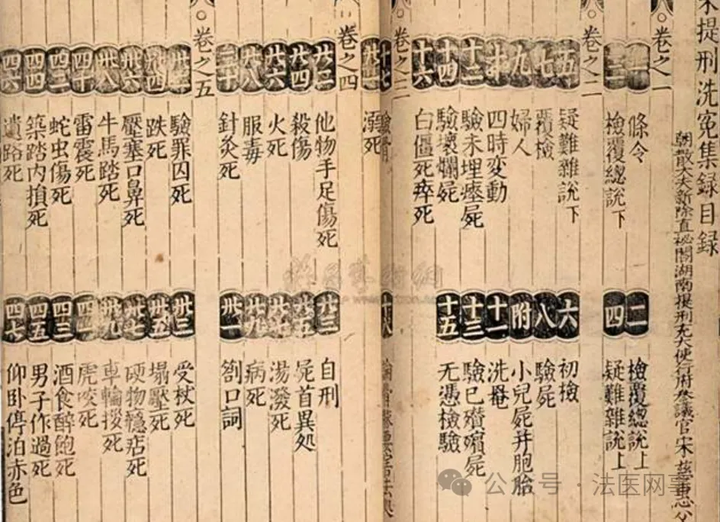 宋提刑洗冤集録目録
朝散大夫新除直祕閣湖南提刑充大使行府參議官宋慈惠父
卷之一
一 條令 二 檢覆總說上
三 檢覆總說下 四 疑難雜說上
卷之二
五 疑難雜說下 六 初檢
七 覆檢 八 驗屍
九 婦人 附 小兒屍并胞胎
十 四時変動 十一 洗罨
十二 驗未埋瘞屍 十三 驗已殯屍
十四 驗壞爛屍 十五 無憑檢驗
十六 白僵死瘁死
卷之三
十七 驗骨 十八
溺死
卷之四
廿二 他物手足傷死 廿三 自刑
廿四 殺傷 廿五 屍首異處
廿六 火死 廿七 湯潑死
廿八 服毒 廿九 病死
三十 針灸死 卅一 劄口詞
卷之五
卅二 驗罪囚死 卅三 受杖死
卅四 跌死 卅五 塌壓死
卅六 壓塞口鼻死 卅七 硬物癮痁死
卅八 牛馬踏死 卅九 車輪拶死
四十 雷震死 四一 虎咬死
四二 蛇虫傷死 四三 酒食醉飽死
四四 築踏內損死 四五 男子作過死
四六 遺路死 四七 仰卧停泊赤色
公众号 法医网事